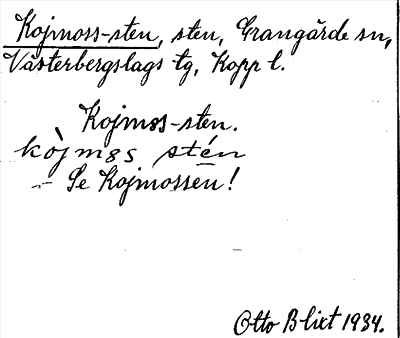 Kojmoss-sten, sten, Grangärde sn,
Västerbergslags tg, Kopp l.
Kojmøs-sten.
kòjmøs stén
- Se Kojmossen!
Otto Blixt 1934.